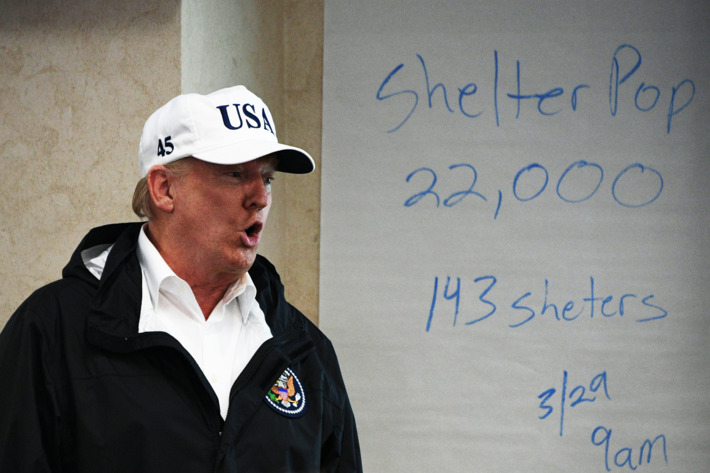 USA
45
Shelter Pop
22,000
143 sheters
3/29
9am